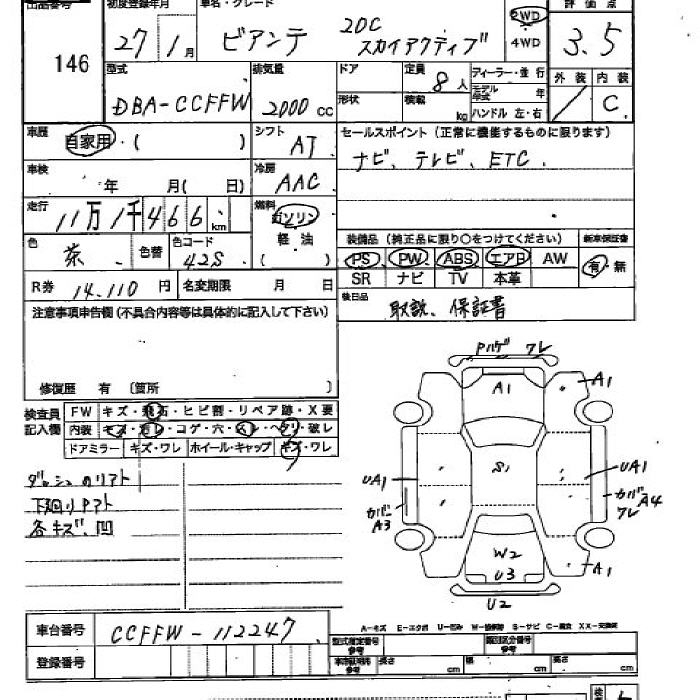 出品番号 初度登録年月 車名・グレード 評価点
146 27 1月 ビアンテ 20C スカイアクティブ 2WD 4WD 3.5
型式 排気量 ドア 定員 8人 ディーラー・並行 外装 内装
DBA-CCFFW 2000cc 形状 積載 kg モデル年式 年 ハンドル 左・右 C
車歴 自家用・( ) シフト AT セールスポイント(正常に機能するものに限ります)
車検 年 月( 日) 冷房 AAC ナビ、テレビ、ETC
走行 11万1千466km 燃料 ガソリン 軽油 ( )
色 茶 色替 色コード 42S 装備品(純正品に限り○をつけてください) 新車保証書
PS PW ABS エアB AW 有・無
SR ナビ TV 本革
R券 14,110円 名変期限 月 日 後日品 取説、保証書
注意事項申告欄(不具合内容等は具体的に記入して下さい)
修復歴 有 (箇所 )
検査員記入欄 FW キズ・飛石・ヒビ割・リペア跡・X要
内装 キズ・汚レ・コゲ・穴・スレ・ヘタリ・破レ
ドアミラー キズ・ワレ ホイール・キャップ キズ・ワレ
下廻りPアト
各キズ、凹
Pハゲ ワレ
A1 A1
S1
UA1 UA1
カバー A3 カバー A4 ワレ
W2
U3 A1
U2
A-キズ E-エクボ U-凹み W-補修跡 S-サビ C-腐食 XX-交換済
車台番号 CCFFW-112247 型式指定番号 参考 類別区分番号 参考
登録番号 車検証明書 参考 長さ cm 幅 cm 高さ cm